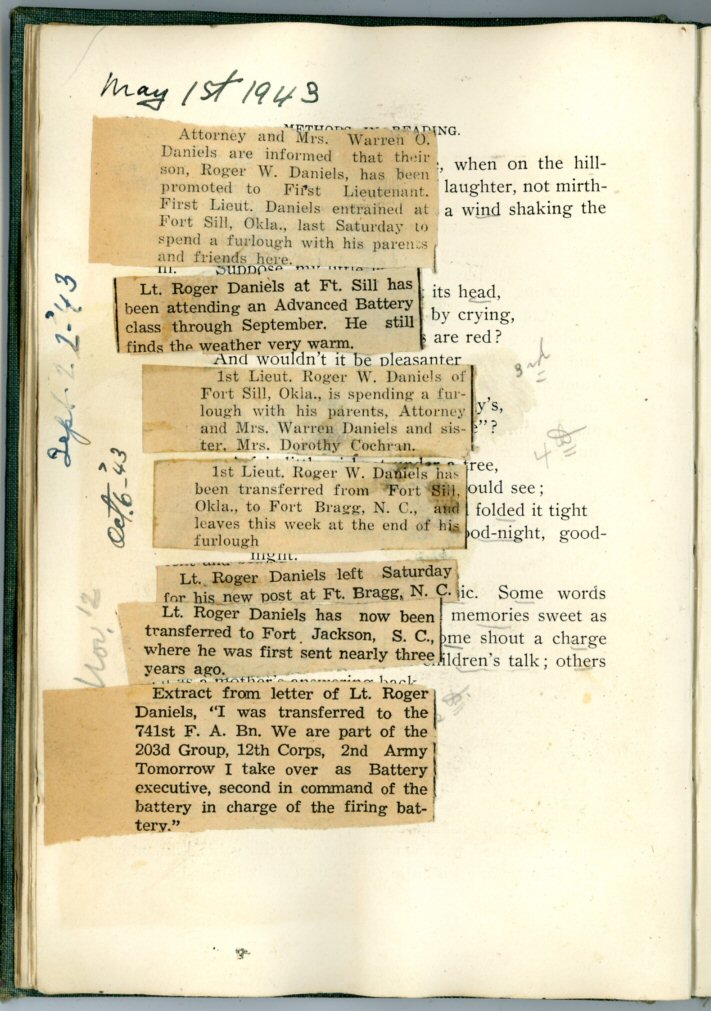 May 1st 1943
METHODS IN READING.
Attorney and Mrs. Warren O.
Daniels are informed that their
son, Roger W. Daniels, has been
promoted to First Lieutenant.
First Lieut. Daniels entrained at
Fort Sill, Okla., last Saturday to
spend a furlough with his parents
and friends here.
, when on the hill-
laughter, not mirth-
a wind shaking the
III. Suppose, my little
Lt. Roger Daniels at Ft. Sill has
been attending an Advanced Battery
class through September. He still
finds the weather very warm.
its head,
by crying,
are red?
And wouldn't it be pleasanter
Sept. 22-'43
3rd
1st Lieut. Roger W. Daniels of
Fort Sill, Okla., is spending a fur-
lough with his parents, Attorney
and Mrs. Warren Daniels and sis-
ter, Mrs. Dorothy Cochran.
y's,
"?
4
Oct. 6-'43
1st Lieut. Roger W. Daniels has
been transferred from Fort Sill,
Okla., to Fort Bragg, N. C., and
leaves this week at the end of his
furlough
tree,
ould see;
folded it tight
ood-night, good-
night.
Lt. Roger Daniels left Saturday
for his new post at Ft. Bragg, N. C.
ic. Some words
Nov. 12
Lt. Roger Daniels has now been
transferred to Fort Jackson, S. C.,
where he was first sent nearly three
years ago.
memories sweet as
ome shout a charge
children's talk; others
as a mother's answering back
Extract from letter of Lt. Roger
Daniels, "I was transferred to the
741st F. A. Bn. We are part of the
203d Group, 12th Corps, 2nd Army
Tomorrow I take over as Battery
executive, second in command of the
battery in charge of the firing bat-
tery."